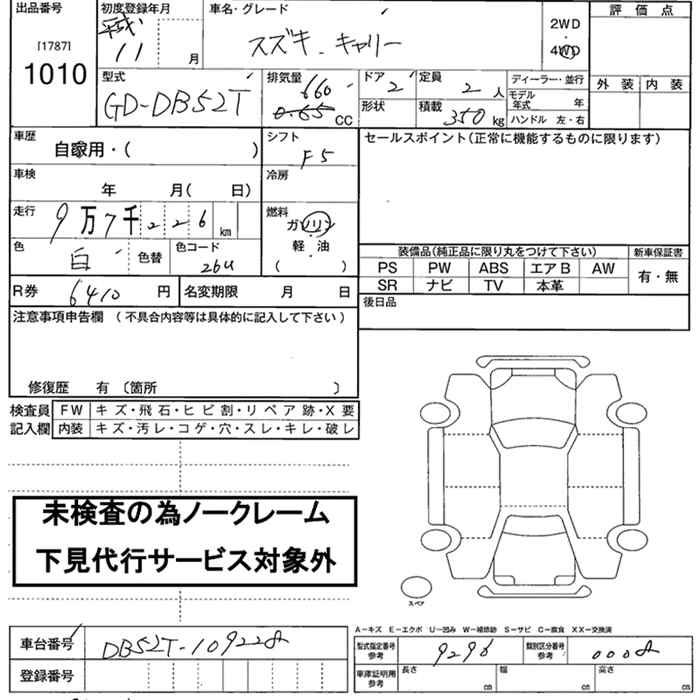 出品番号
[1787]
1010
初度登録年月
平成
11 月
車名・グレード
スズキ キャリー
2WD
4WD
評価点
外装 内装
型式
GD-DB52T
排気量
660
0.65 CC
ドア
2
形状
定員
2 人
積載
350 kg
ディーラー・並行
モデル
年式 年
ハンドル 左・右
車歴
自家用・( )
シフト
F5
セールスポイント(正常に機能するものに限ります)
車検
年 月( 日)
冷房
走行
9万7千226 km
燃料
ガソリン
軽・油
( )
色
白
色替
色コード
26U
装備品(純正品に限り丸をつけて下さい)
新車保証書
PS PW ABS エアB AW
SR ナビ TV 本革
有・無
R券 6410 円
名変期限 月 日
後日品
注意事項申告欄 (不具合内容等は具体的に記入して下さい)
修復歴 有 〔箇所 〕
検査員
記入欄
FW キズ・飛石・ヒビ割・リペア跡・X要
内装 キズ・汚レ・コゲ・穴・スレ・キレ・破レ
未検査の為ノークレーム
下見代行サービス対象外
スペア
A-キズ E-エクボ U-凹み W-補修跡 S-サビ C-腐食 XX-交換済
車台番号
登録番号
型式指定番号
参考
9296
類別区分番号
参考
車庫証明用
参考
長さ cm
幅 cm
高さ cm